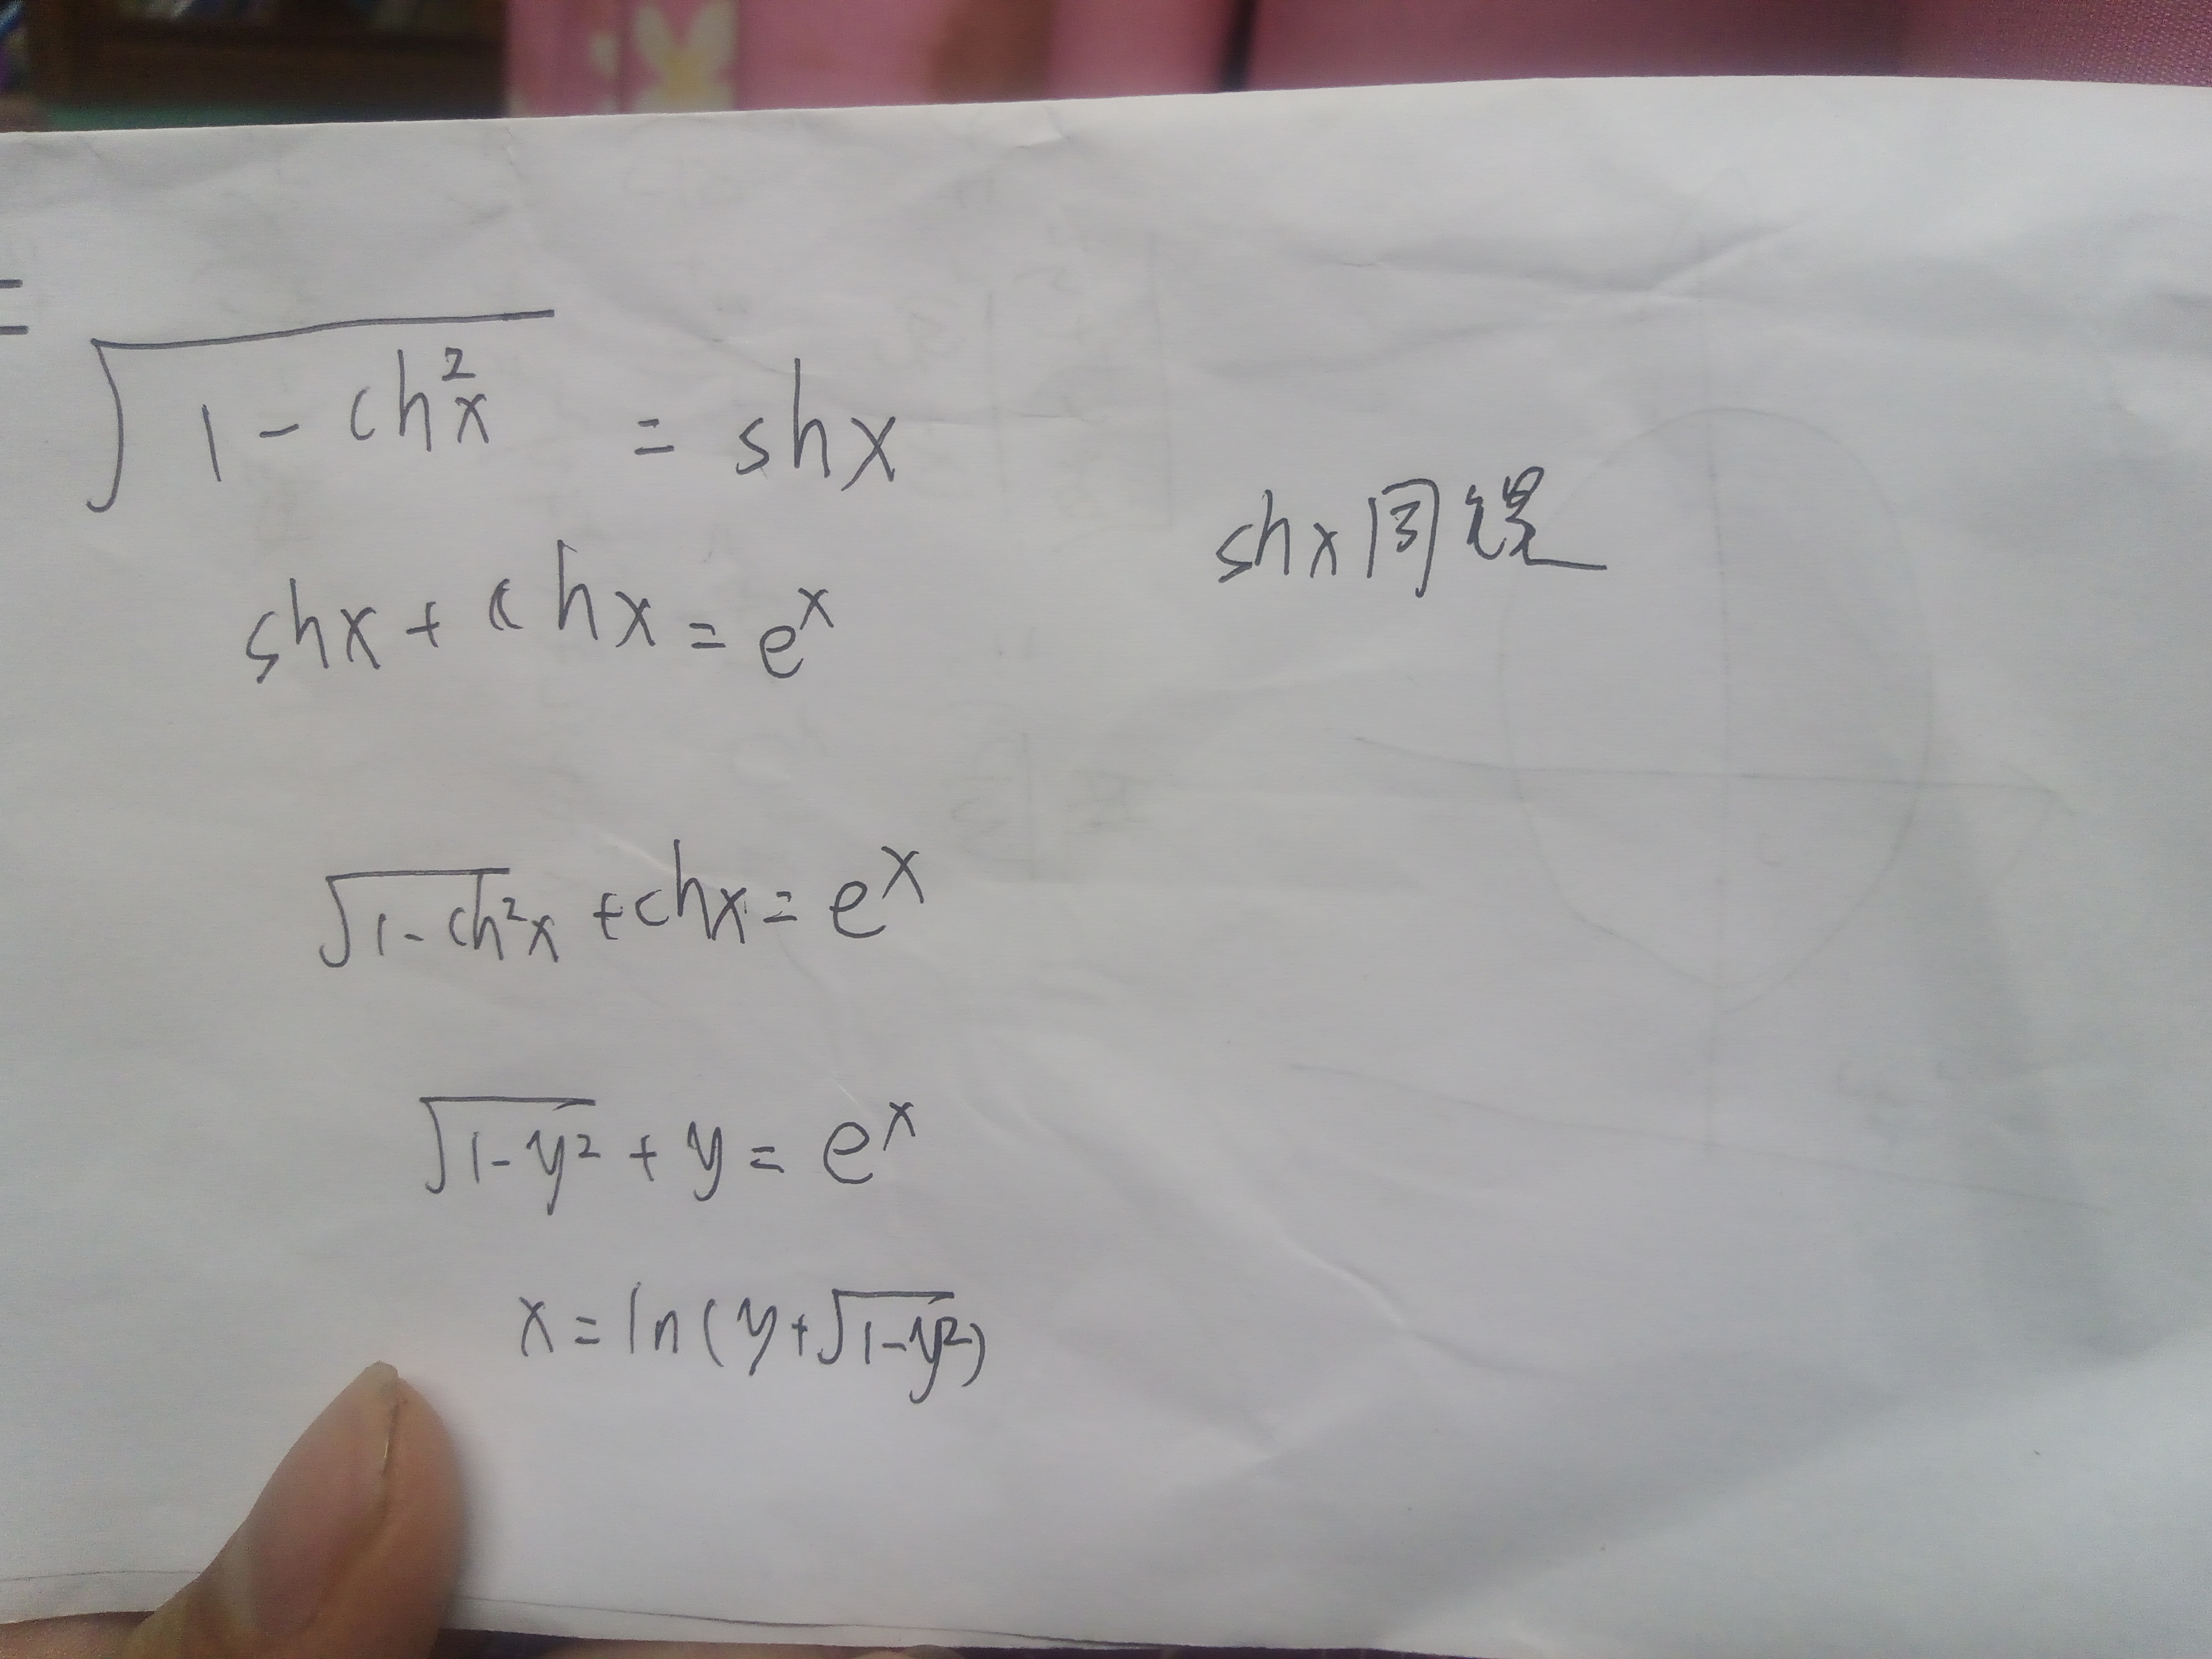 =
√(1 - ch²x) = shx
shx同误
shx + chx = eˣ
√(1 - ch²x) + chx = eˣ
√(1 - y²) + y = eˣ
x = ln(y + √(1 - y²))